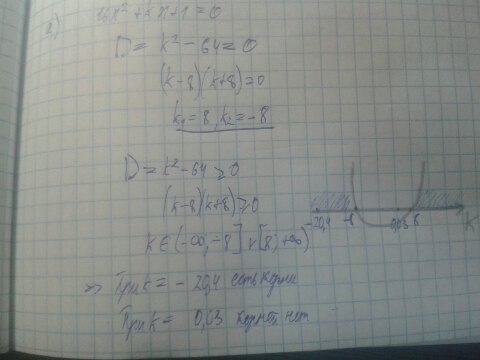 2) 16x² + kx + 1 = 0
D = k² - 64 = 0
(k-8)(k+8) = 0
k₁ = 8, k₂ = -8
D = k² - 64 ≥ 0
(k-8)(k+8) ≥ 0
k ∈ (-∞; -8] ∨ [8; +∞)
-20,4 -8 0,03 8 K
=> При k = - 20,4 есть корни
При k = 0,03 корней нет